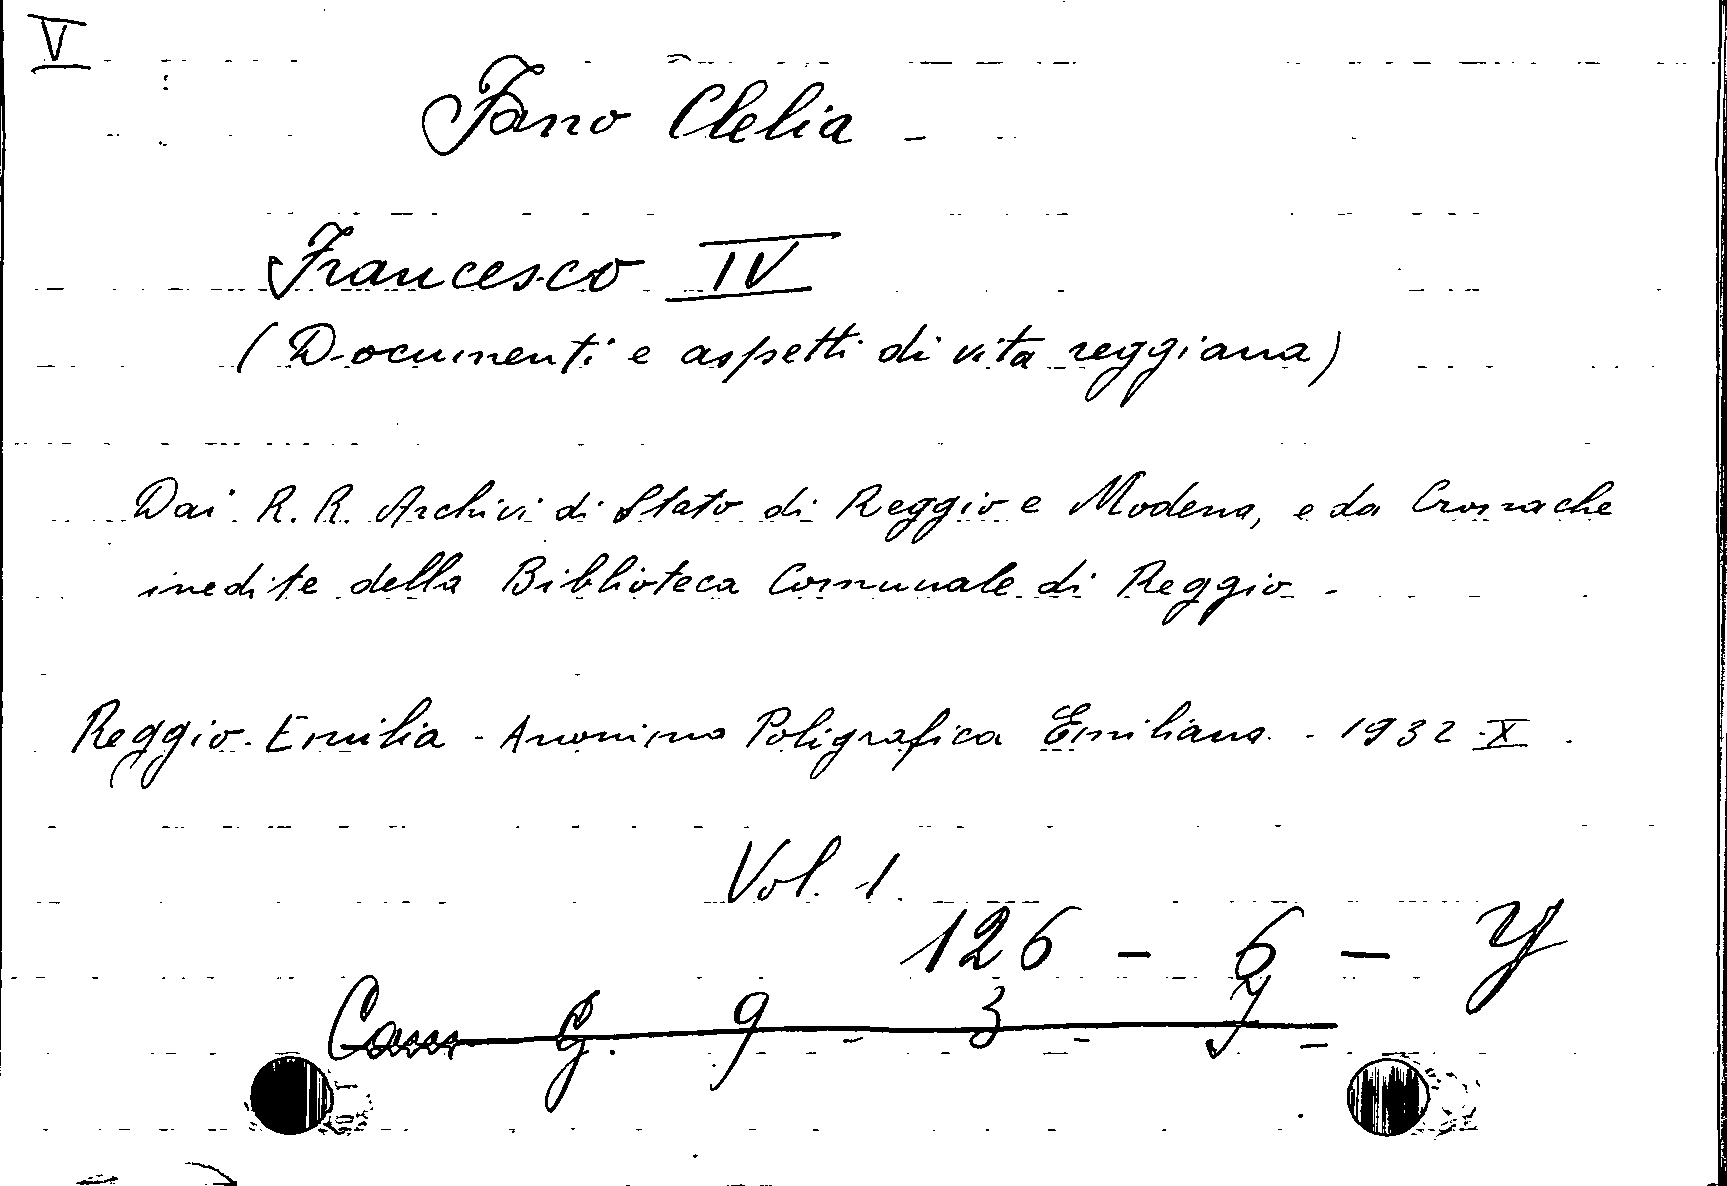 V
Fano Clelia -
Francesco IV
(Documenti e aspetti di vita reggiana)
Dai R. R. Archivi di Stato di Reggio e Modena, e da Cronache
inedite della Biblioteca Comunale di Reggio -
Reggio-Emilia - Anonima Poligrafica Emiliana - 1932-X.
Vol. 1.
126 - 6 - Y
G. 9 - 3 -